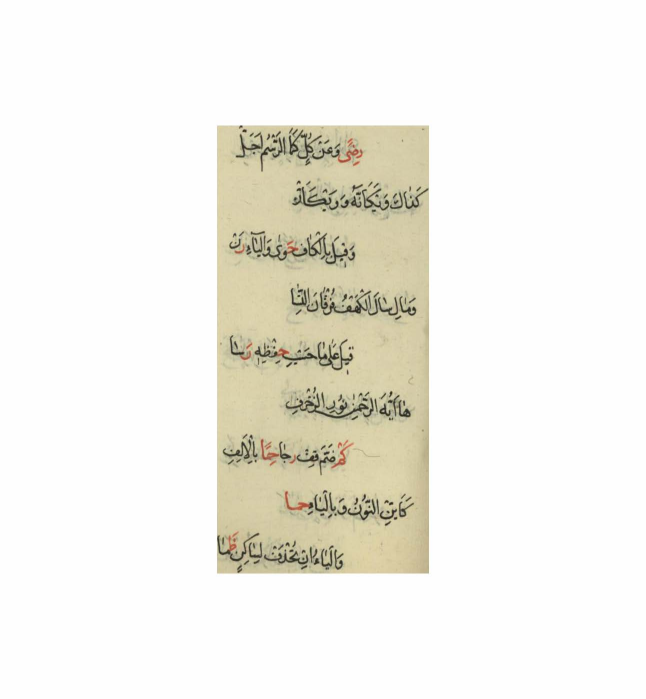 رِضًى وَعَنْ كُلٍّ كَمَا الرَّسْمُ أَجَلّْ
كَذَاكَ وَيْكَأَنَّهُ وَوَيْكَأَنّْ
وَقِيلَ بِالْكَافِ حَوَى وَالْيَاءِ رَنْ
وَمَالِ سَالَ الْكَهْفِ فُرْقَانَ النِّسَا
قِيلَ عَلَى مَا حَسْبُ حِفْظُهُ رَسَا
هَا أَيُّهَ الرَّحْمٰنِ نُورِ الزُّخْرُفِ
كَمْ ضَمَّ قِفْ رَجَا حِمًا بِالْأَلِفِ
كَأَيِّنِ النُّونُ وَبِالْيَاءِ حِمَا
وَالْيَاءُ إِنْ تُحْذَفْ لِسَاكِنٍ ظَمَا